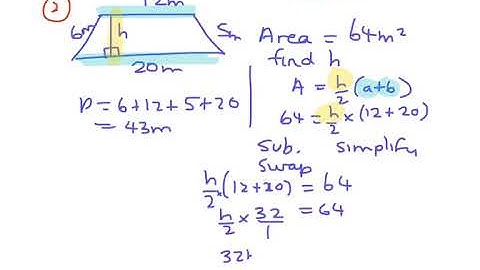 2
12m
6m h 5m
20m
P = 6+12+5+20
= 43m
Area = 64m²
find h
A = h/2 (a+b)
64 = h/2 × (12+20)
sub. simplify
swap
h/2 × (12+20) = 64
h/2 × 32/1 = 64
32h